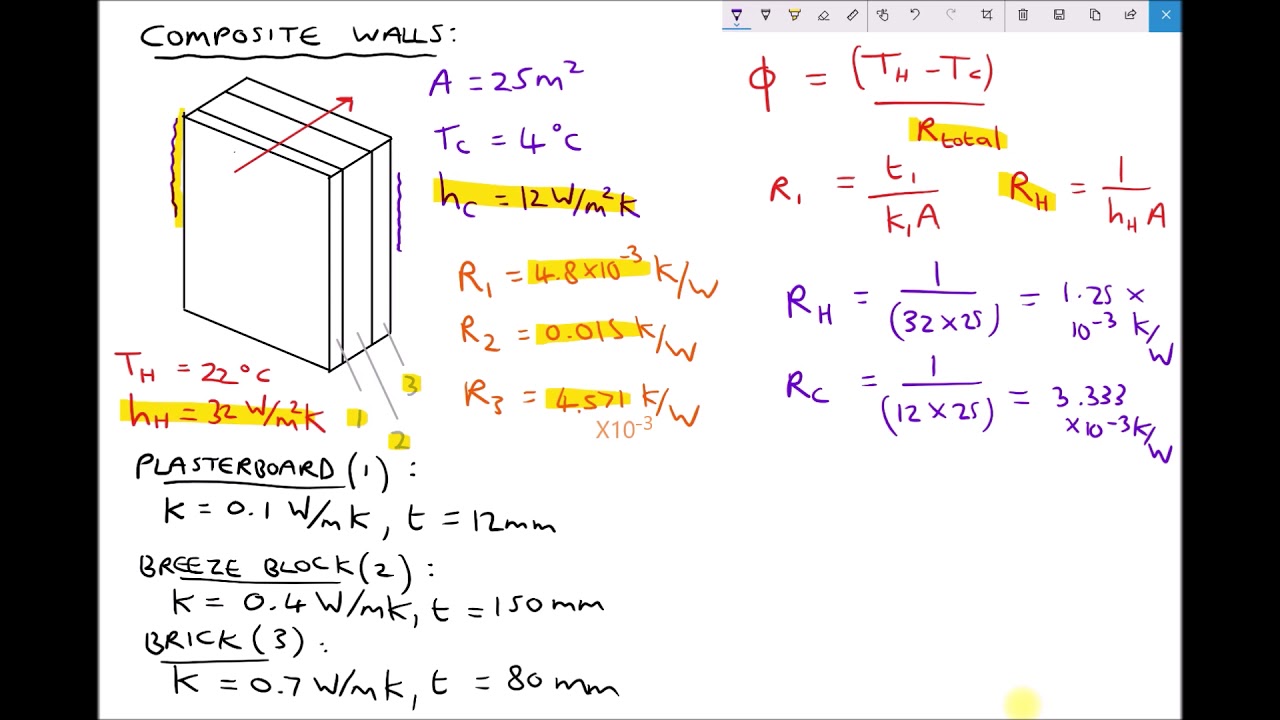 COMPOSITE WALLS:
A = 25m²
Tc = 4°c
hc = 12 W/m²k
R1 = 4.8×10⁻³ k/W
R2 = 0.015 k/W
R3 = 4.571 k/W
X10⁻³
TH = 22°c
hH = 32 W/m²k
1
2
3
PLASTERBOARD (1) :
k = 0.1 W/mk, t = 12mm
BREEZE BLOCK (2) :
k = 0.4 W/mk, t = 150mm
BRICK (3) :
k = 0.7 W/mk, t = 80mm
ϕ = (TH - Tc) / Rtotal
R1 = t1 / k1A
RH = 1 / hHA
RH = 1 / (32×25) = 1.25 ×
10⁻³ k/W
Rc = 1 / (12×25) = 3.333
×10⁻³k/W